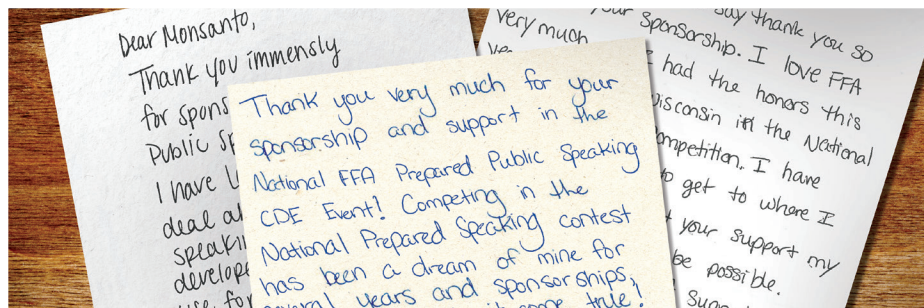 Dear Monsanto,
Thank you immensly
for spons
Public Sp
I have
deal
speakin
develope
for
Thank you very much for your
sponsorship and support in the
National FFA Prepared Public Speaking
CDE Event! Competing in the
National Prepared Speaking contest
has been a dream of mine for
several years and sponsorships,
some true!
say thank you so
very much
your sponsorship. I love FFA
had the honors this
isconsin in the National
ompetition. I have
to get to where I
your support my
be possible.